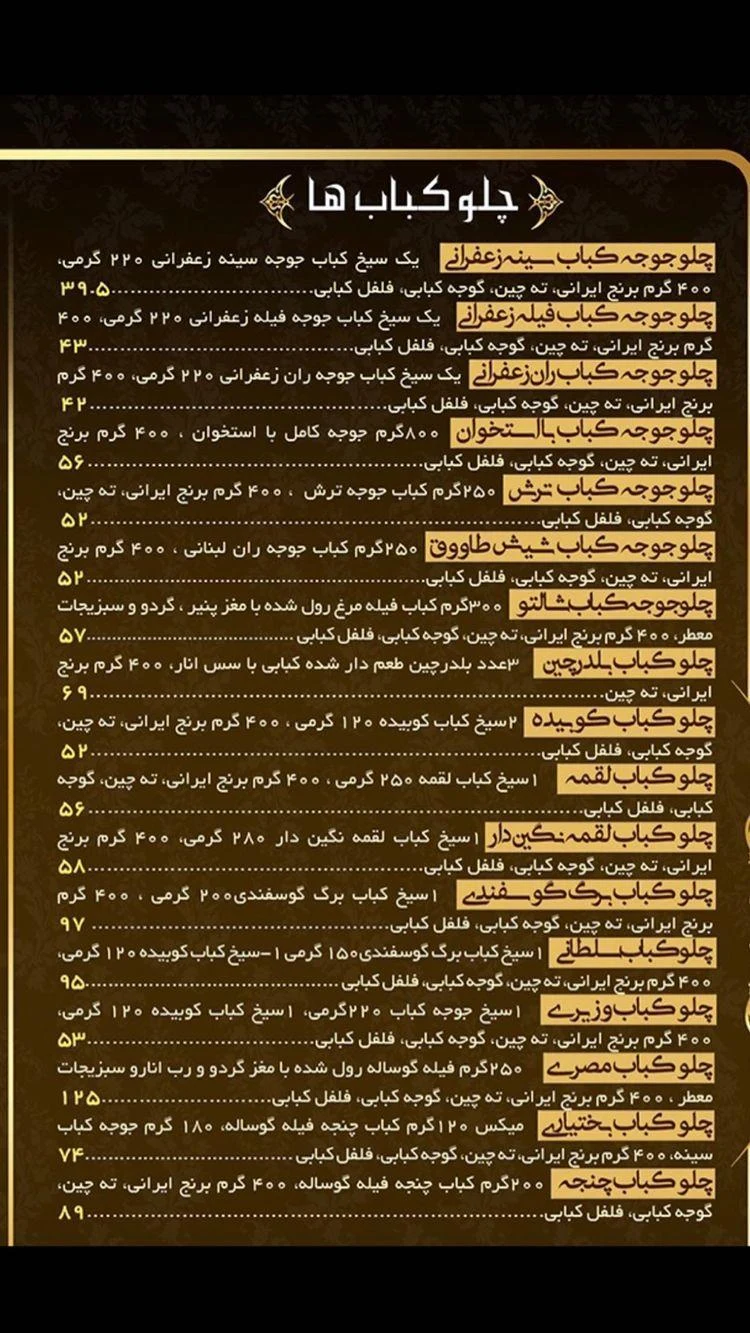 چلو کباب ها
چلو جوجه کباب سینه زعفرانی یک سیخ کباب جوجه سینه زعفرانی ۲۲۰ گرمی،
۴۰۰ گرم برنج ایرانی، ته چین، گوجه کبابی، فلفل کبابی..............................۳۹.۵
چلو جوجه کباب فیله زعفرانی یک سیخ کباب جوجه فیله زعفرانی ۲۲۰ گرمی، ۴۰۰
گرم برنج ایرانی، ته چین، گوجه کبابی، فلفل کبابی..............................۴۳
چلو جوجه کباب ران زعفرانی یک سیخ کباب جوجه ران زعفرانی ۲۲۰ گرمی، ۴۰۰ گرم
برنج ایرانی، ته چین، گوجه کبابی، فلفل کبابی..............................۴۲
چلو جوجه کباب با استخوان ۸۰۰گرم جوجه کامل با استخوان ، ۴۰۰ گرم برنج
ایرانی، ته چین، گوجه کبابی، فلفل کبابی..............................۵۶
چلو جوجه کباب ترش ۲۵۰گرم کباب جوجه ترش ، ۴۰۰ گرم برنج ایرانی، ته چین،
گوجه کبابی، فلفل کبابی..............................۵۲
چلو جوجه کباب شیش طاووق ۲۵۰گرم کباب جوجه ران لبنانی ، ۴۰۰ گرم برنج
ایرانی، ته چین، گوجه کبابی، فلفل کبابی..............................۵۲
چلو جوجه کباب شالتو ۳۰۰گرم کباب فیله مرغ رول شده با مغز پنیر ، گردو و سبزیجات
معطر، ۴۰۰ گرم برنج ایرانی، ته چین، گوجه کبابی، فلفل کبابی..............................۵۷
چلو کباب بلدرچین ۳عدد بلدرچین طعم دار شده کبابی با سس انار، ۴۰۰ گرم برنج
ایرانی، ته چین..............................۶۹
چلو کباب کوبیده ۲سیخ کباب کوبیده ۱۲۰ گرمی ، ۴۰۰ گرم برنج ایرانی، ته چین،
گوجه کبابی، فلفل کبابی..............................۵۲
چلو کباب لقمه ۱سیخ کباب لقمه ۲۵۰ گرمی ، ۴۰۰ گرم برنج ایرانی، ته چین، گوجه
کبابی، فلفل کبابی..............................۵۶
چلو کباب لقمه نگین دار ۱سیخ کباب لقمه نگین دار ۲۸۰ گرمی، ۴۰۰ گرم برنج
ایرانی، ته چین، گوجه کبابی، فلفل کبابی..............................۵۸
چلو کباب برگ گوسفندی ۱سیخ کباب برگ گوسفندی۲۰۰ گرمی ، ۴۰۰ گرم
برنج ایرانی، ته چین، گوجه کبابی، فلفل کبابی..............................۹۷
چلو کباب سلطانی ۱سیخ کباب برگ گوسفندی۱۵۰ گرمی ۱-سیخ کباب کوبیده ۱۲۰ گرمی،
۴۰۰ گرم برنج ایرانی، ته چین، گوجه کبابی، فلفل کبابی..............................۹۵
چلو کباب وزیری ۱سیخ جوجه کباب ۲۲۰گرمی، ۱سیخ کباب کوبیده ۱۲۰ گرمی،
۴۰۰ گرم برنج ایرانی، ته چین، گوجه کبابی، فلفل کبابی..............................۵۳
چلو کباب مصری ۲۵۰گرم فیله گوساله رول شده با مغز گردو و رب انارو سبزیجات
معطر ، ۴۰۰ گرم برنج ایرانی، ته چین، گوجه کبابی، فلفل کبابی..............................۱۲۵
چلو کباب بختیاری میکس ۱۲۰گرم کباب چنجه فیله گوساله، ۱۸۰ گرم جوجه کباب
سینه، ۴۰۰ گرم برنج ایرانی، ته چین، گوجه کبابی، فلفل کبابی..............................۷۴
چلو کباب چنجه ۲۰۰گرم کباب چنجه فیله گوساله، ۴۰۰ گرم برنج ایرانی، ته چین،
گوجه کبابی، فلفل کبابی..............................۸۹